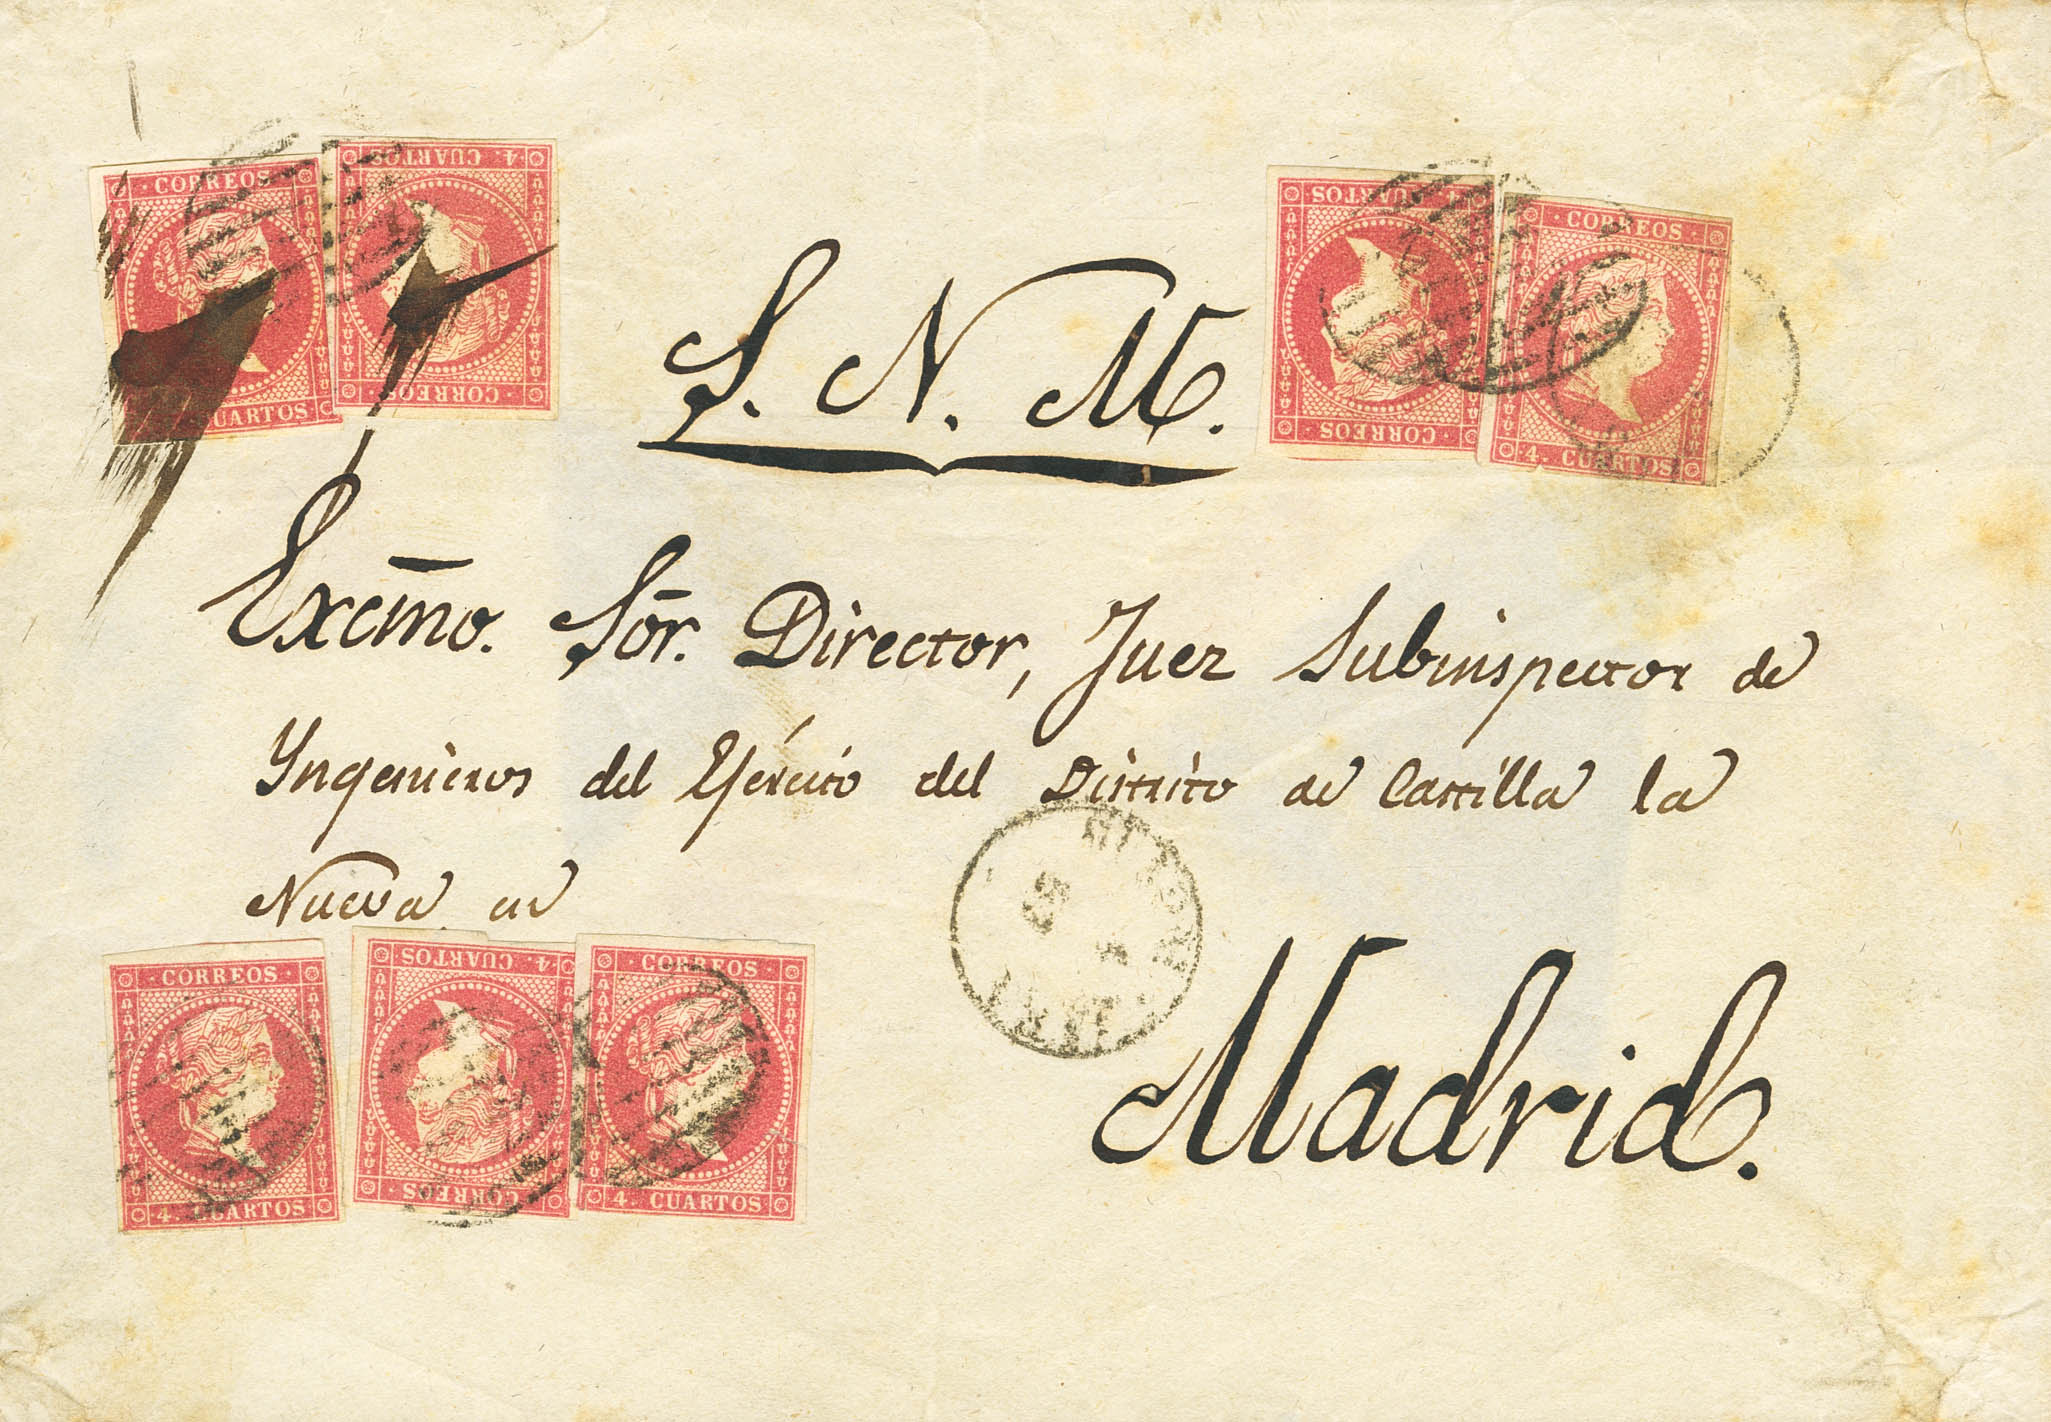 · CORREOS ·
4. CUARTOS
CORREOS
CUARTOS
4. CUARTOS
CORREOS
· CORREOS ·
4. CUARTOS
S. N. M.
Excmo. Sor. Director, Juez Subinspector de
Yngenieros del Ejército del Distrito de Castilla la
Nueva en
Madrid.
· CORREOS ·
4. CUARTOS
4. CUARTOS
CORREOS
CORREOS
4. CUARTOS